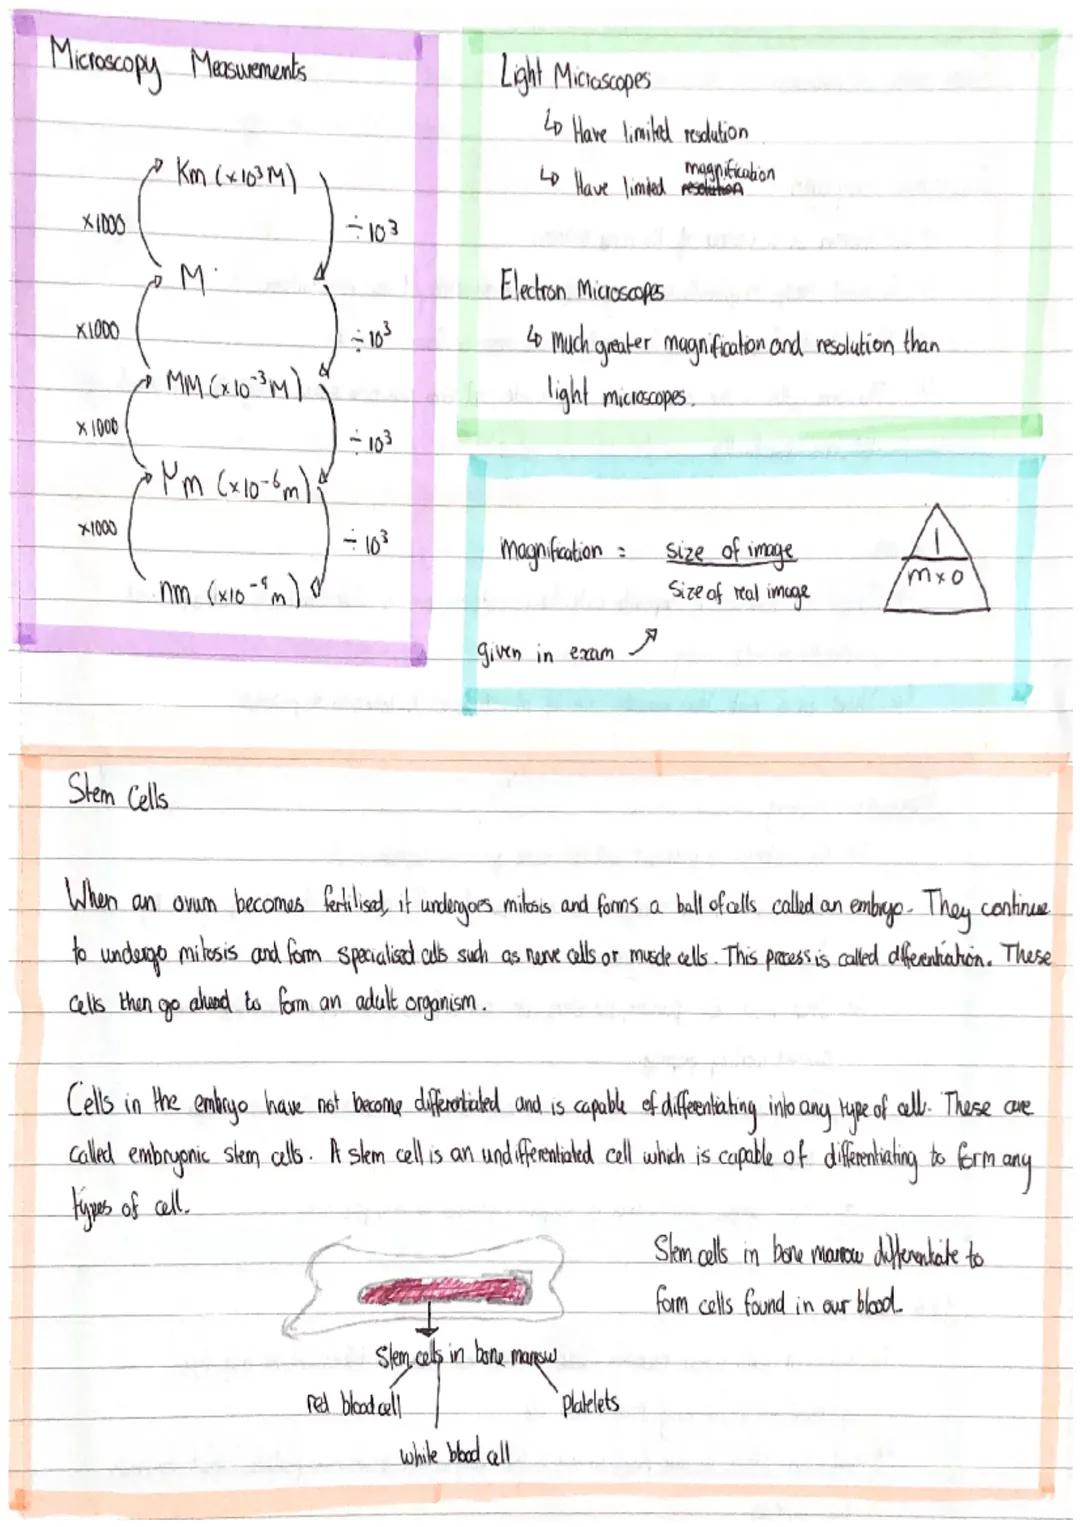 Microscopy Measurements
Km (x10³M)
x1000
÷10³
M
x1000
÷10³
MM (x10⁻³M)
x1000
÷10³
μm (x10⁻⁶m)
x1000
÷10³
nm (x10⁻⁹m)
Light Microscopes
↳ Have limited resolution
↳ Have limited magnification
Electron Microscopes
↳ Much greater magnification and resolution than
light microscopes.
Magnification = size of image
Size of real image
given in exam
I
m x o
Stem Cells
When an ovum becomes fertilised, it undergoes mitosis and forms a ball of cells called an embryo. They continue
to undergo mitosis and form specialised cells such as nerve cells or muscle cells. This process is called differentiation. These
cells then go ahead to form an adult organism.
Cells in the embryo have not become differentiated and is capable of differentiating into any type of cell. These are
called embryonic stem cells. A stem cell is an undifferentiated cell which is capable of differentiating to form any
types of cell.
Stem cells in bone marrow differentiate to
form cells found in our blood.
Stem cells in bone marrow
red blood cell
platelets
white blood cell